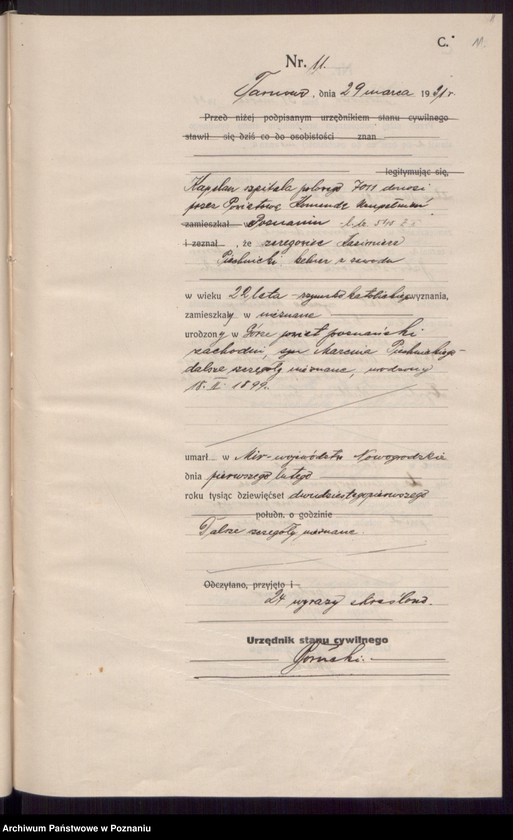 C.
11.
Nr. 11.
Tarnowo, dnia 29 marca 1921 r
Przed niżej podpisanym urzędnikiem stanu cywilnego
stawił się dziś co do osobistości znan
legitymując się,
Kapelan szpitala polnego 701 donosi
przez Powiatową Komendę Uzupełnień
zamieszkał w Poznaniu
i zeznał, że szeregowiec Kazimierz
Piechnicki kelner z zawodu
w wieku 22 lata rzymsko katolickiego wyznania,
zamieszkały w nieznane
urodzony w Górze powiat poznański
zachodni, syn Marcina
dalsze szczegóły nieznane, urodzony
18. II. 1899.
umarł w Mir województwo Nowogrodzkie
dnia pierwszego lutego
roku tysiąc dziewięćset dwudziestego pierwszego
połudn. o godzinie
Dalsze szczegóły nieznane.
Odczytano, przyjęto i
24 wyrazy skreślono.
Urzędnik stanu cywilnego
Archiwum Państwowe w Poznaniu